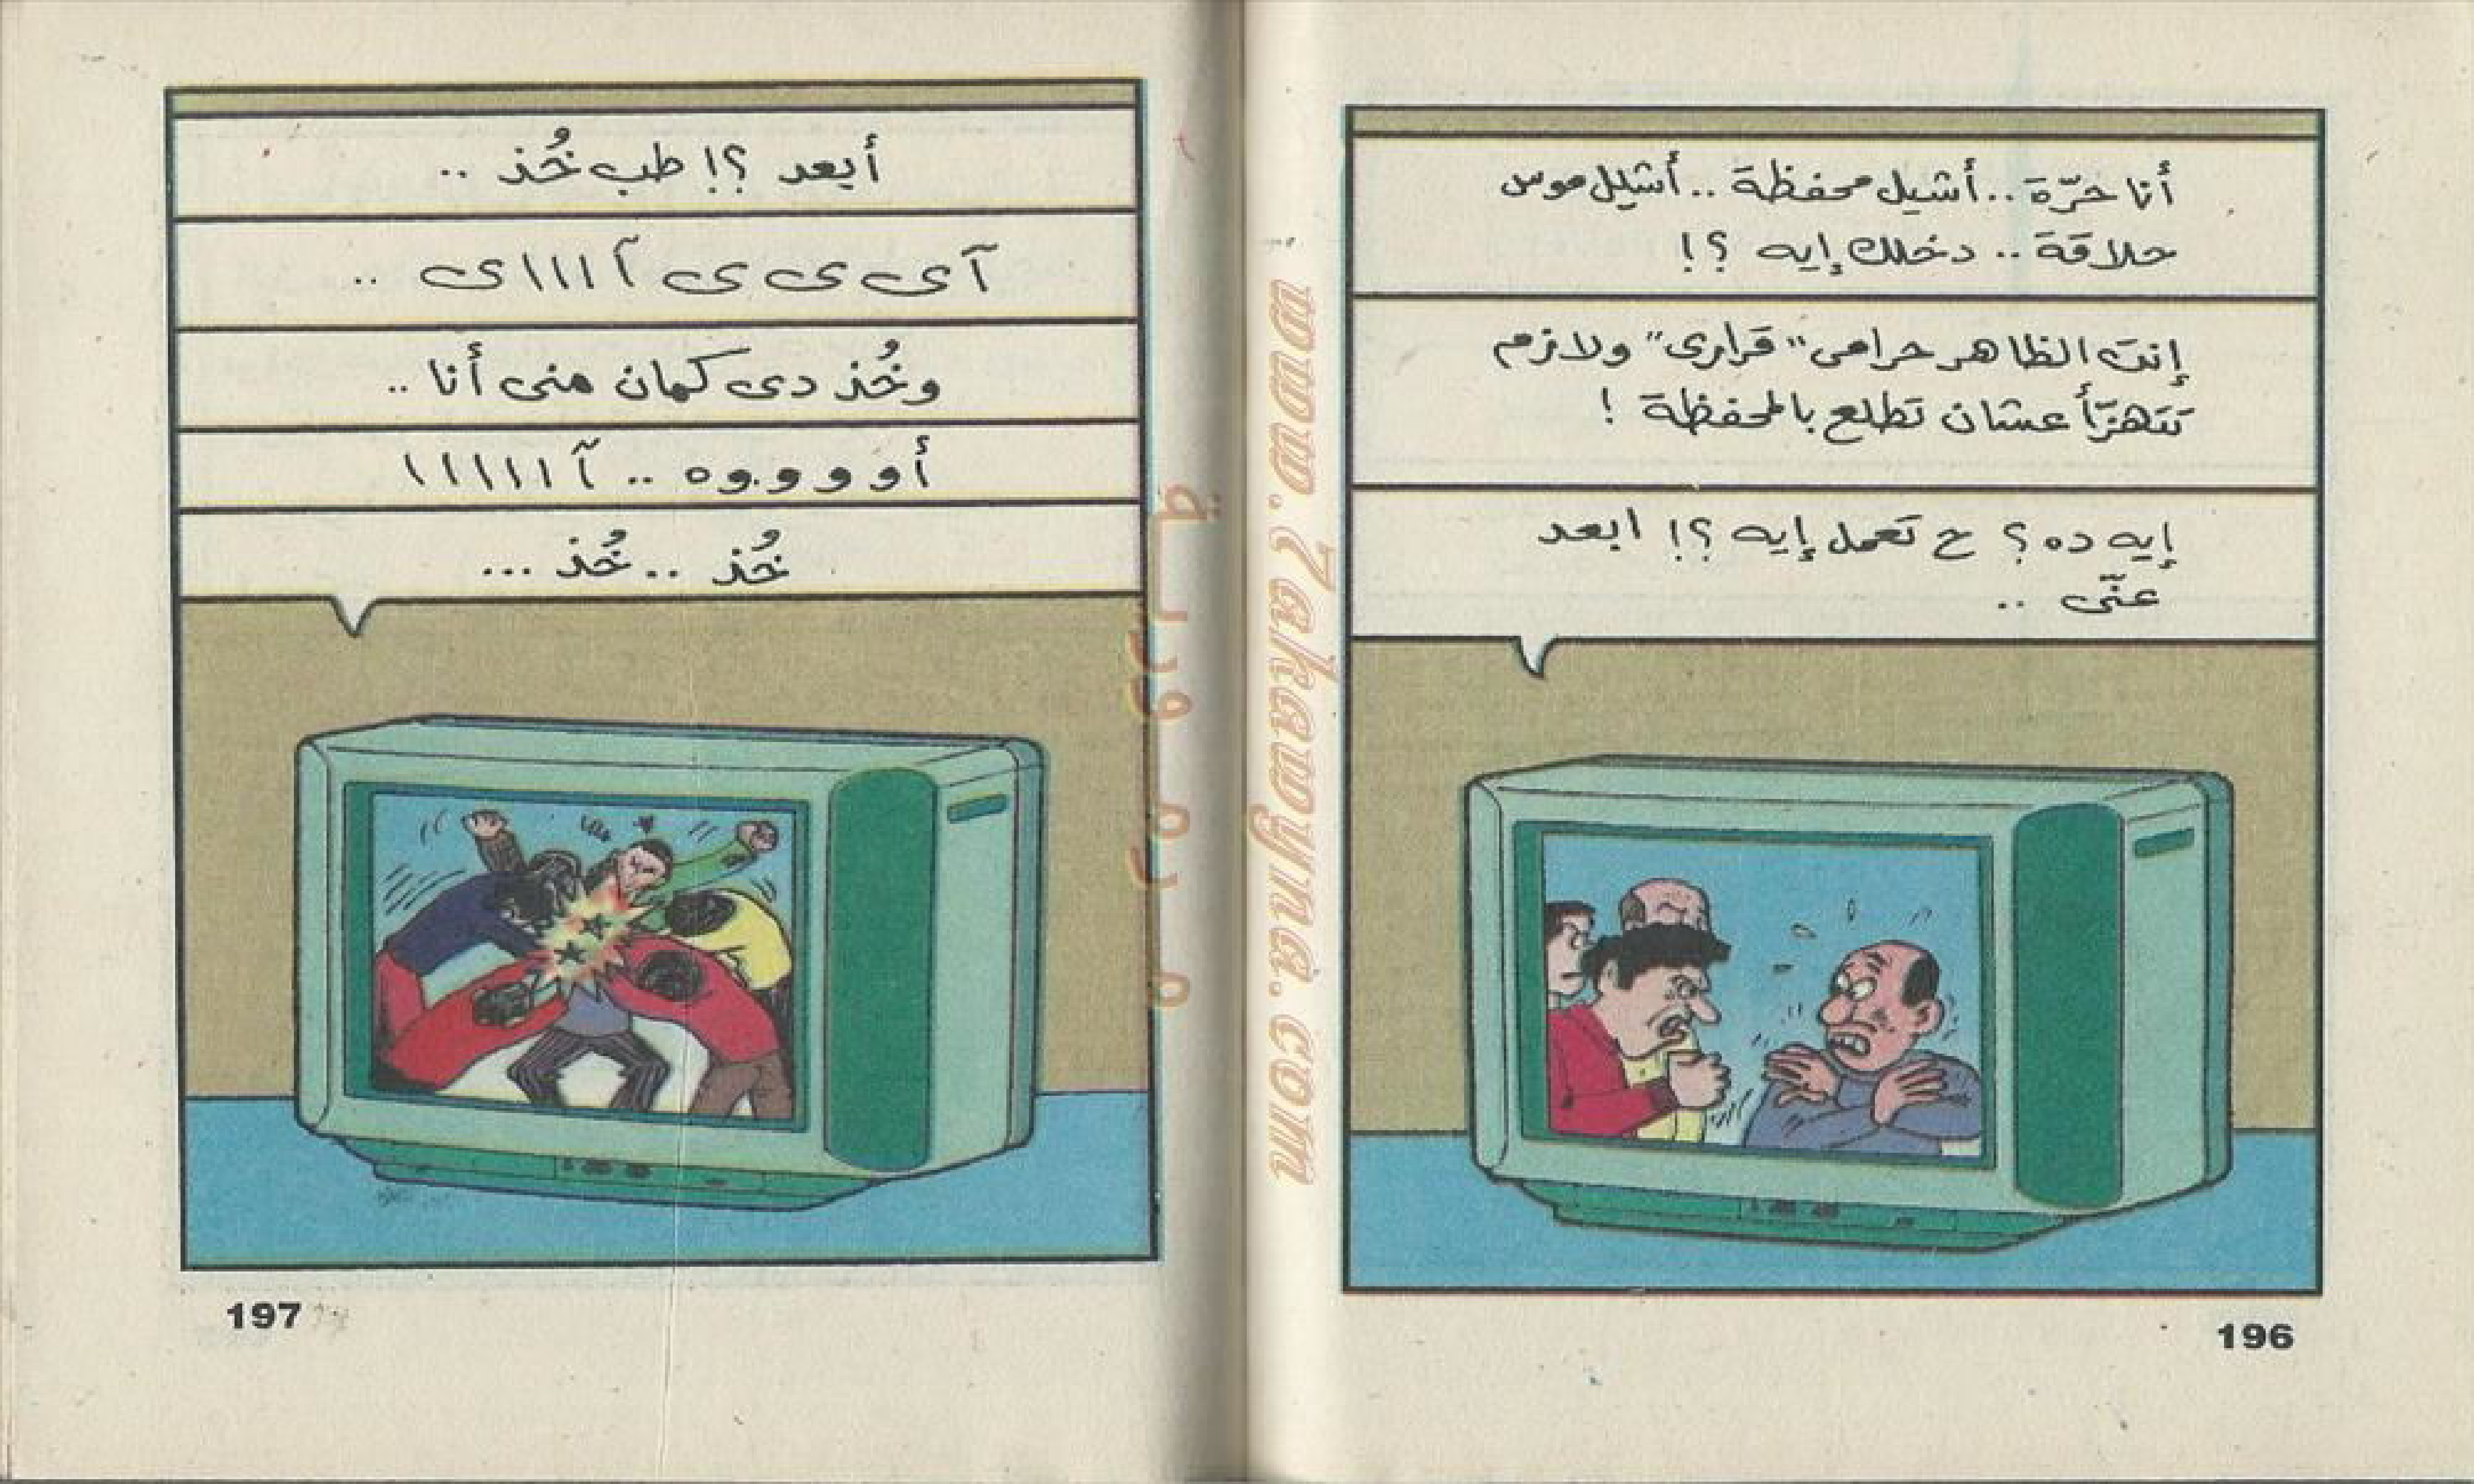 أنا حرّة .. أشيل محفظة .. أشيل موس
حلاقة .. دخلك إيه ؟!
إنت الظاهر حرامى "قرارى" ولازم
تتهزّأ عشان تطلع بالمحفظة !
إيه ده ؟ ح تعمل إيه ؟! ابعد
عنّى ..
196
أبعد ؟! طب خُذ ..
آى ى ى آ ا ا ا ى ..
وخُذ دى كمان منى أنا ..
أو و و.وه .. آ ا ا ا ا ا
خُذ .. خُذ ...
197
www.7akawyna.com